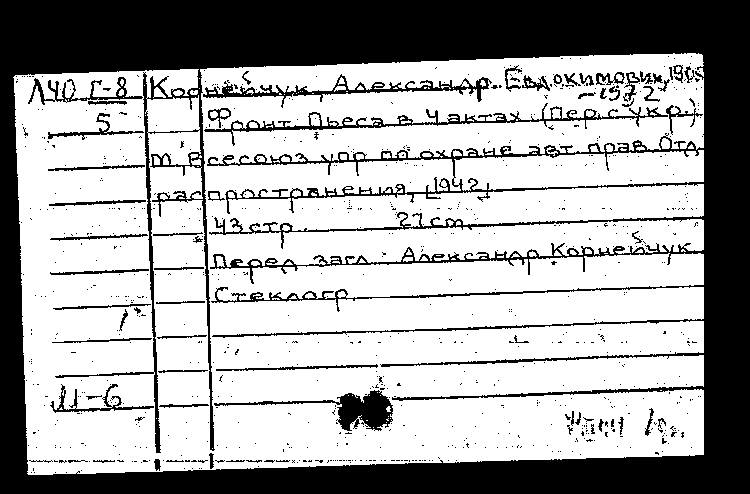 Л40 Г-8 Корнейчук, Александр Евдокимович, 1905
-1972
5 Фронт. Пьеса в 4 актах. (Пер. с укр.)
М, Всесоюз упр по охране авт. прав. Отд
распространения, [1942]
43 стр. 27 cm.
Перед загл.: Александр Корнейчук
Стеклогр.
М-6